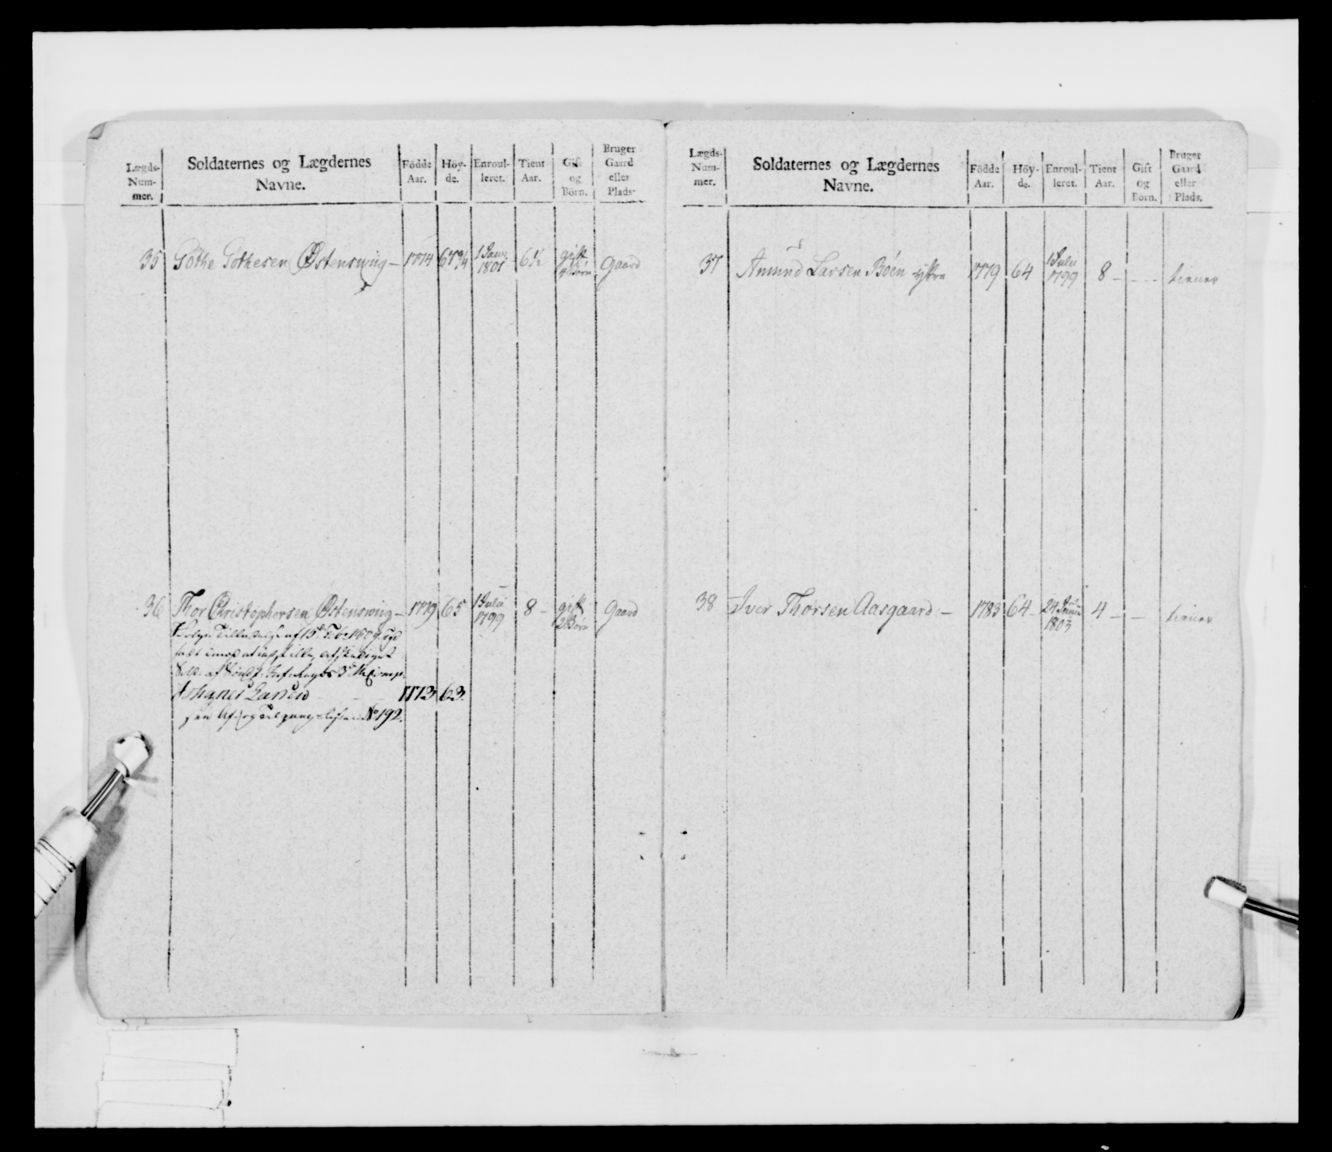 Lægds-Num-mer. Soldaternes og Lægdernes Navne. Födde Aar. Höy-de. Enroul-leret. Tient Aar. Gift og Börn. Bruger Gaard eller Plads.
35 Göthe Göthesen Østenswiig – 1774 67¾ 1 Janv. 1801 6½ gift 4 Børn Gaard
36 Thor Christophersen Østenswiig – 1779 65 1 Julii 1799 8 – gift 2 Børn Gaard
Larsen 1773 63
No 192.
Lægds-Num-mer. Soldaternes og Lægdernes Navne. Födde Aar. Höy-de. Enroul-leret. Tient Aar. Gift og Börn. Bruger Gaard eller Plads.
37 Amund Larsen Böen yttre 1779 64 1 Julii 1799 8 – – – – tiener
38 Iver Thorsen Aasgaard – 1783 64 – 24 Junii 1803 4 – – tiener